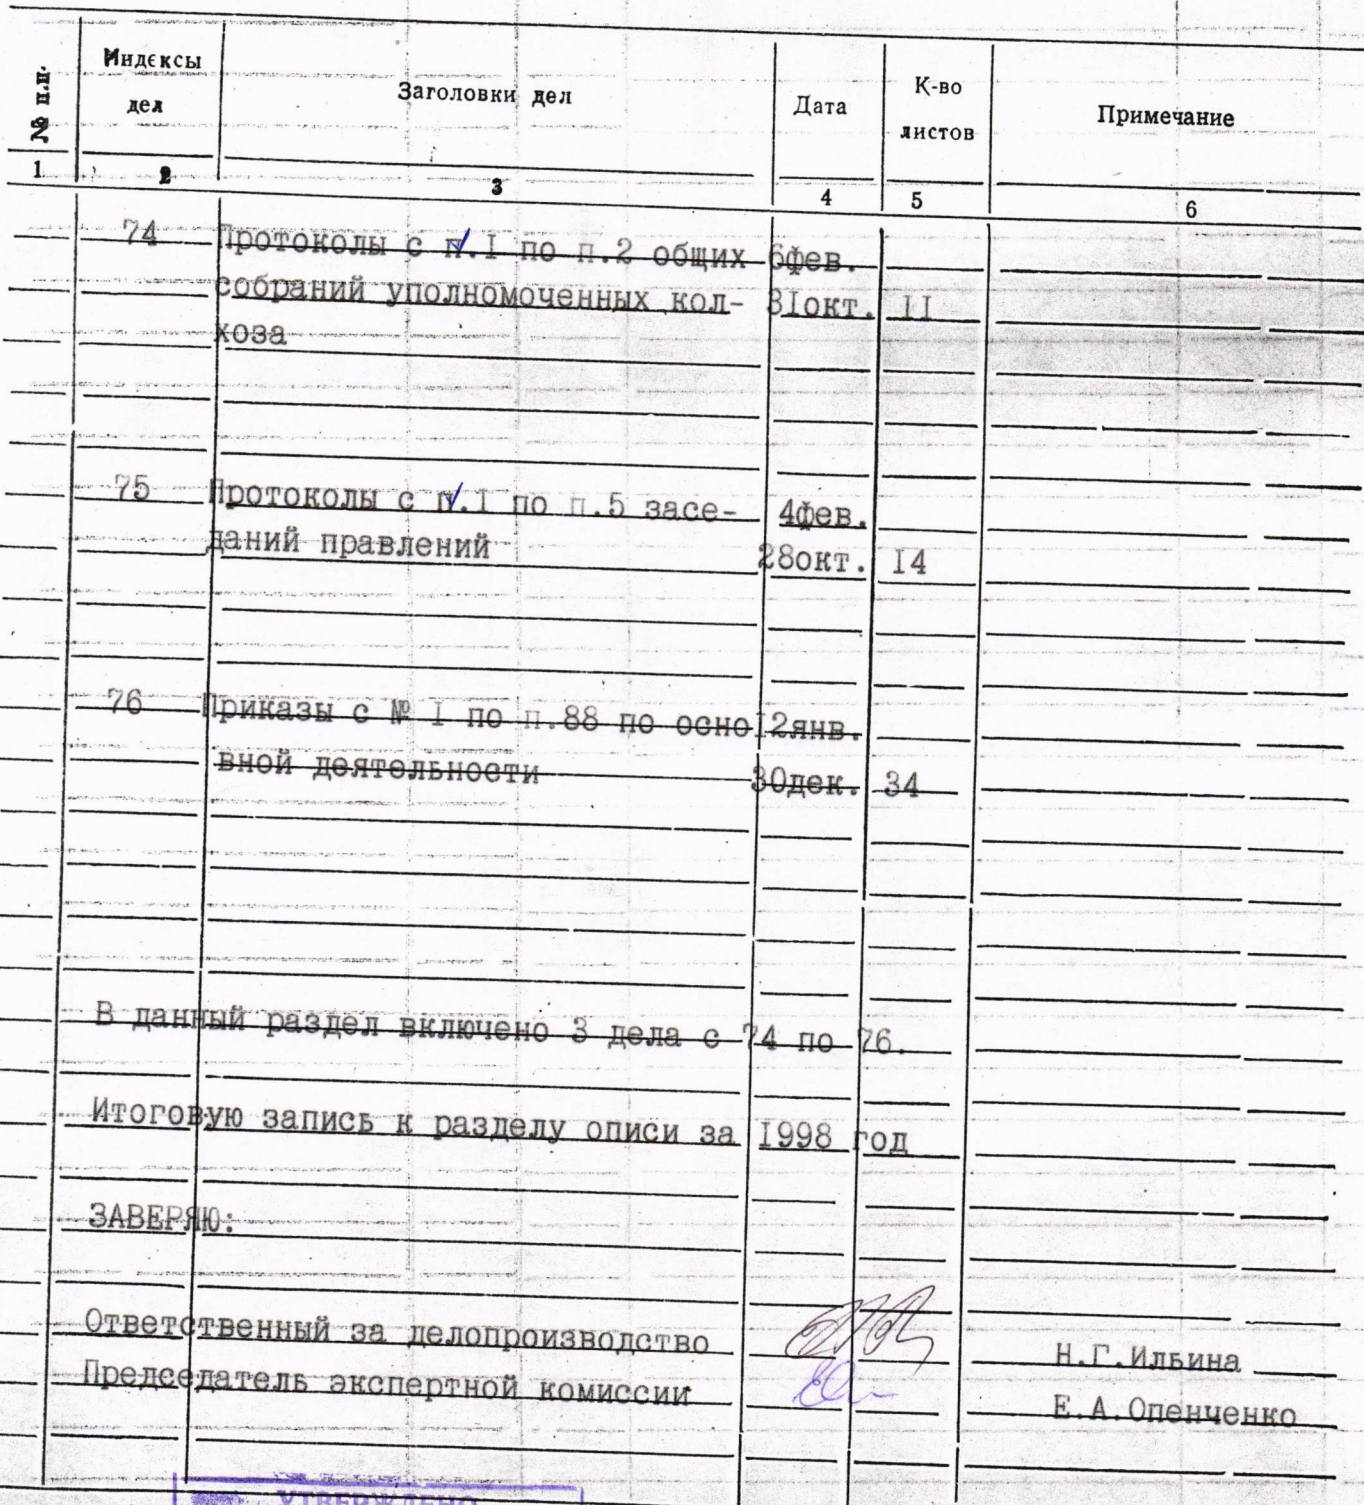 № п.п. Индексы дел Заголовки дел Дата К-во листов Примечание
1 2 3 4 5 6
74 Протоколы с п.I по п.2 общих 6фев.
собраний уполномоченных кол- 3Iокт. II
хоза
75 Протоколы с п.I по п.5 засе- 4фев.
даний правлений 28окт. I4
76 Приказы с № I по п.88 по осно I2янв.
вной деятельности 30дек. 34
В данный раздел включено 3 дела с 74 по 76.
Итоговую запись к разделу описи за I998 год
ЗАВЕРЯЮ:
Ответственный за делопроизводство Н.Г.Ильина
Председатель экспертной комиссии Е.А.Опенченко
УТВЕРЖДЕНО